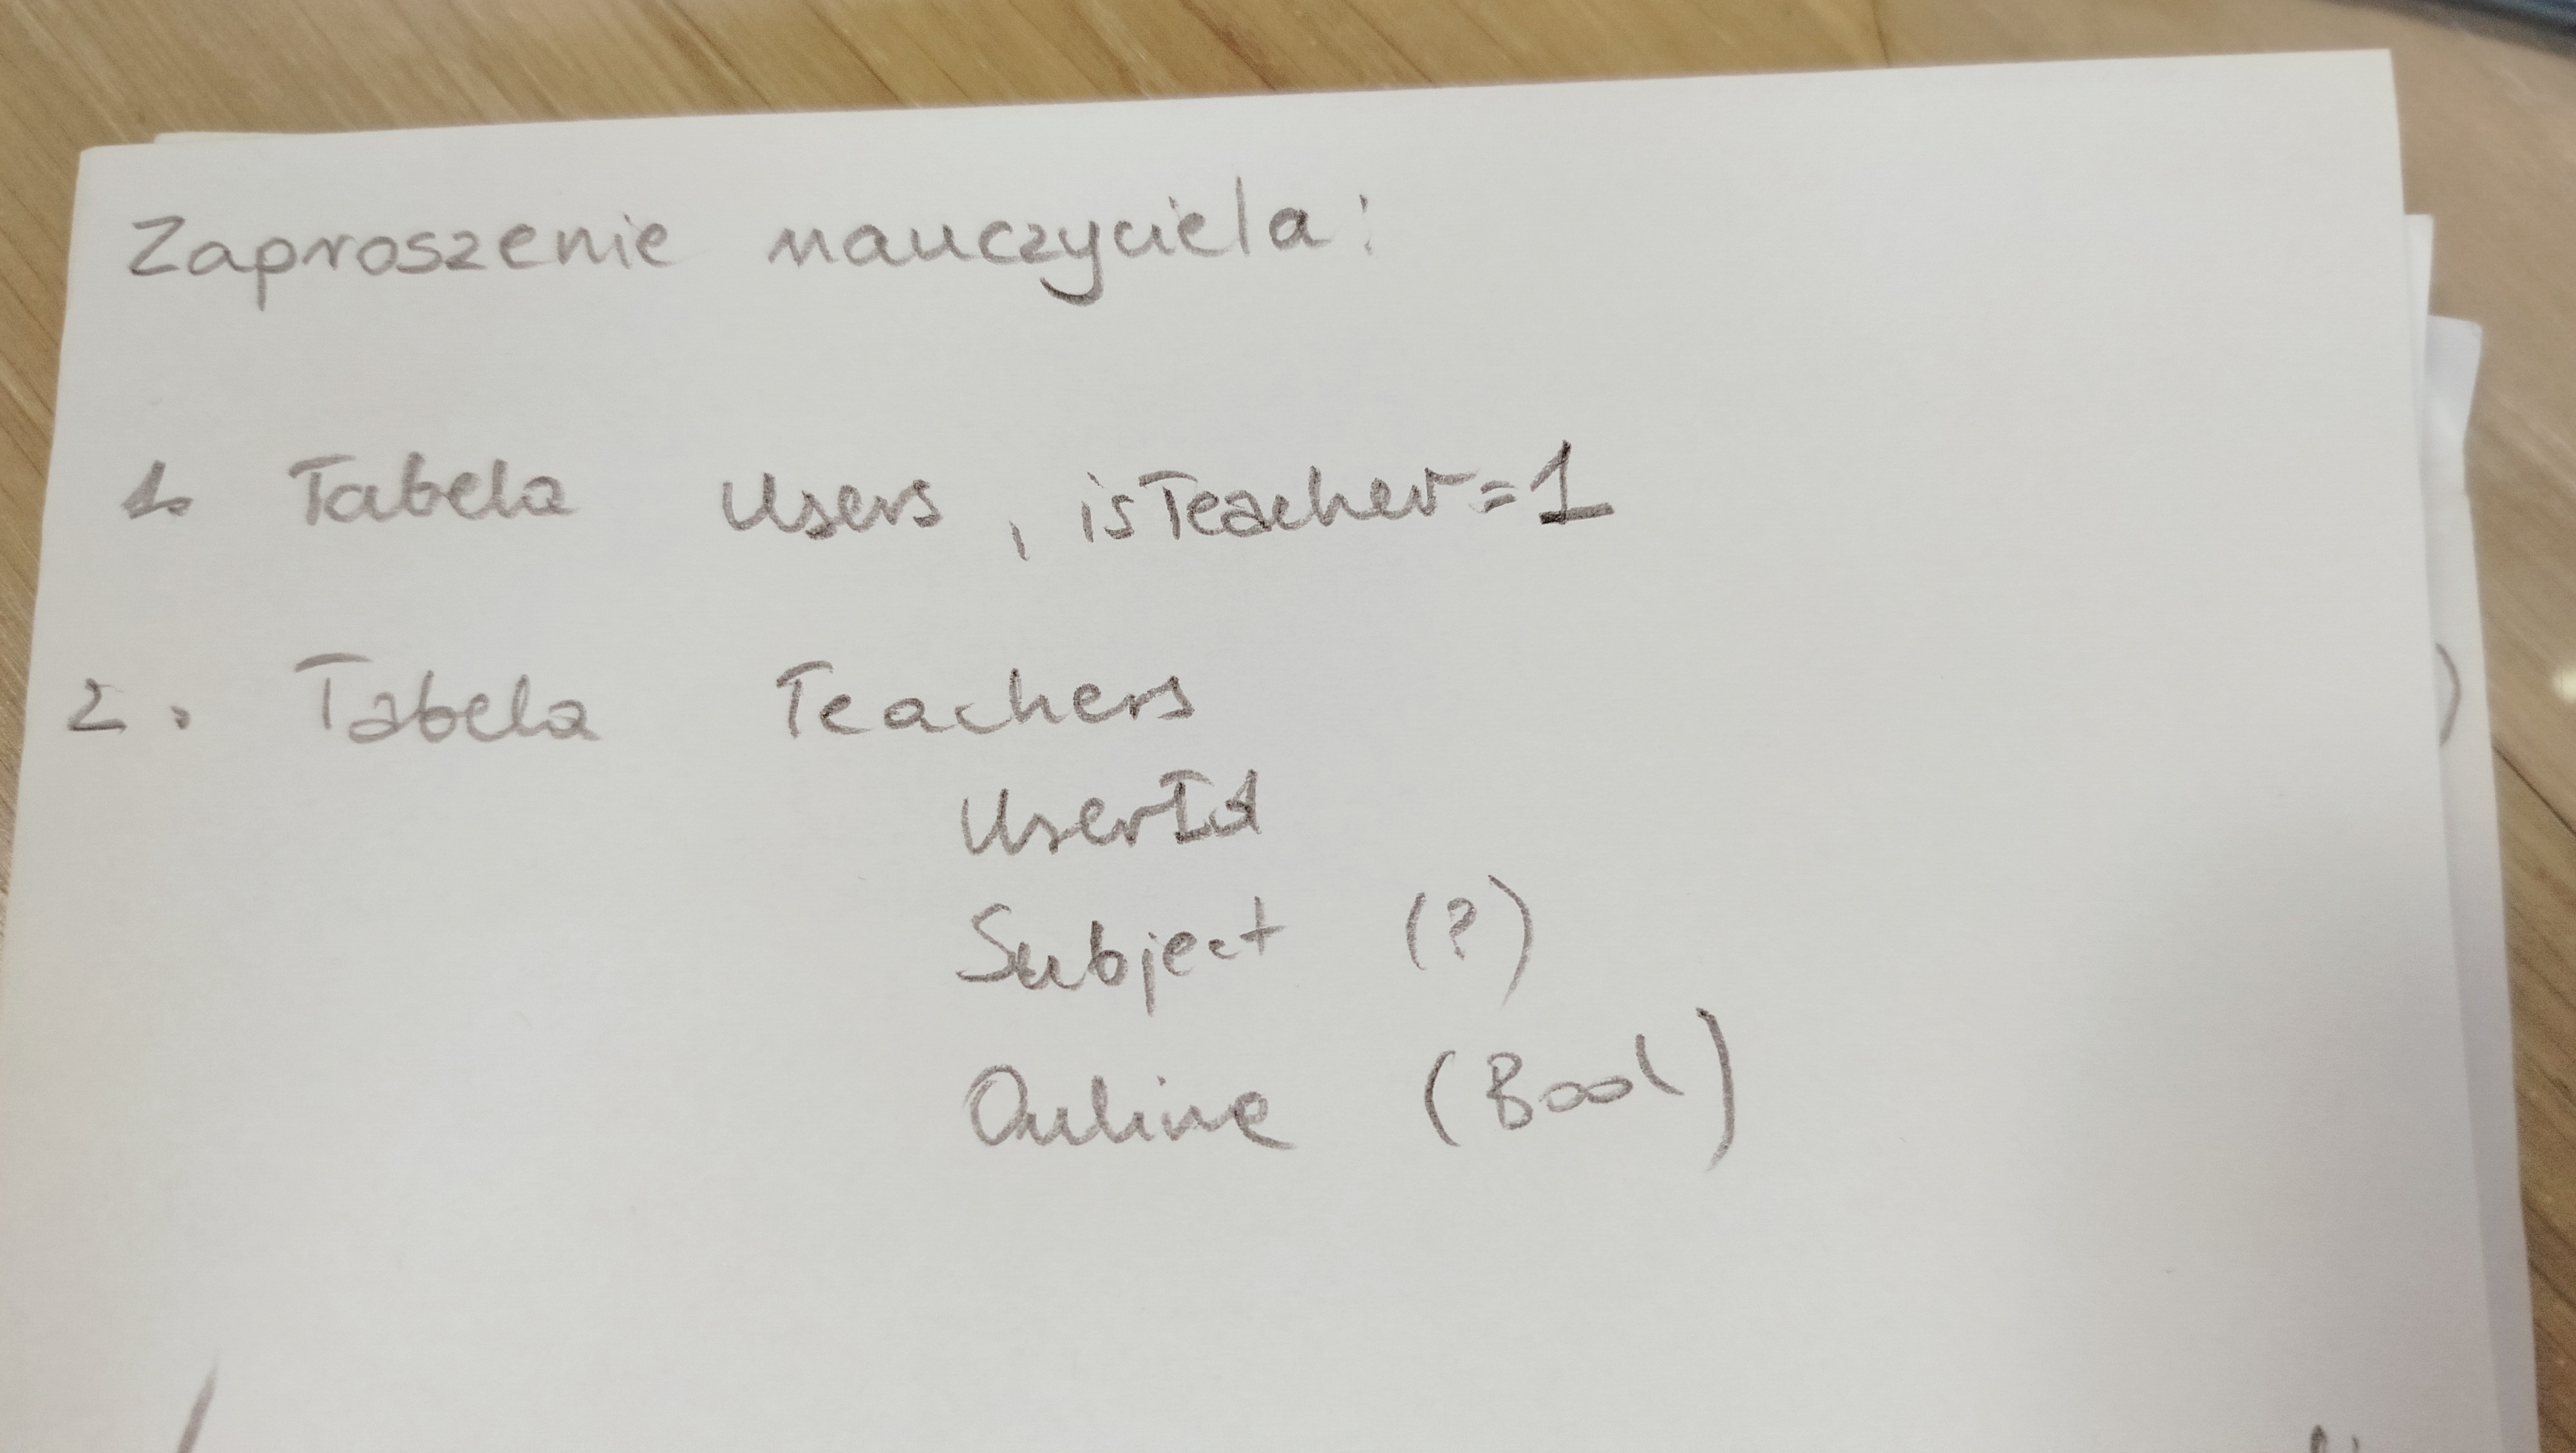 Zaproszenie nauczyciela:
1. Tabela Users, isTeacher=1
2. Tabela Teachers
UserId
Subject (?)
Online (Bool)